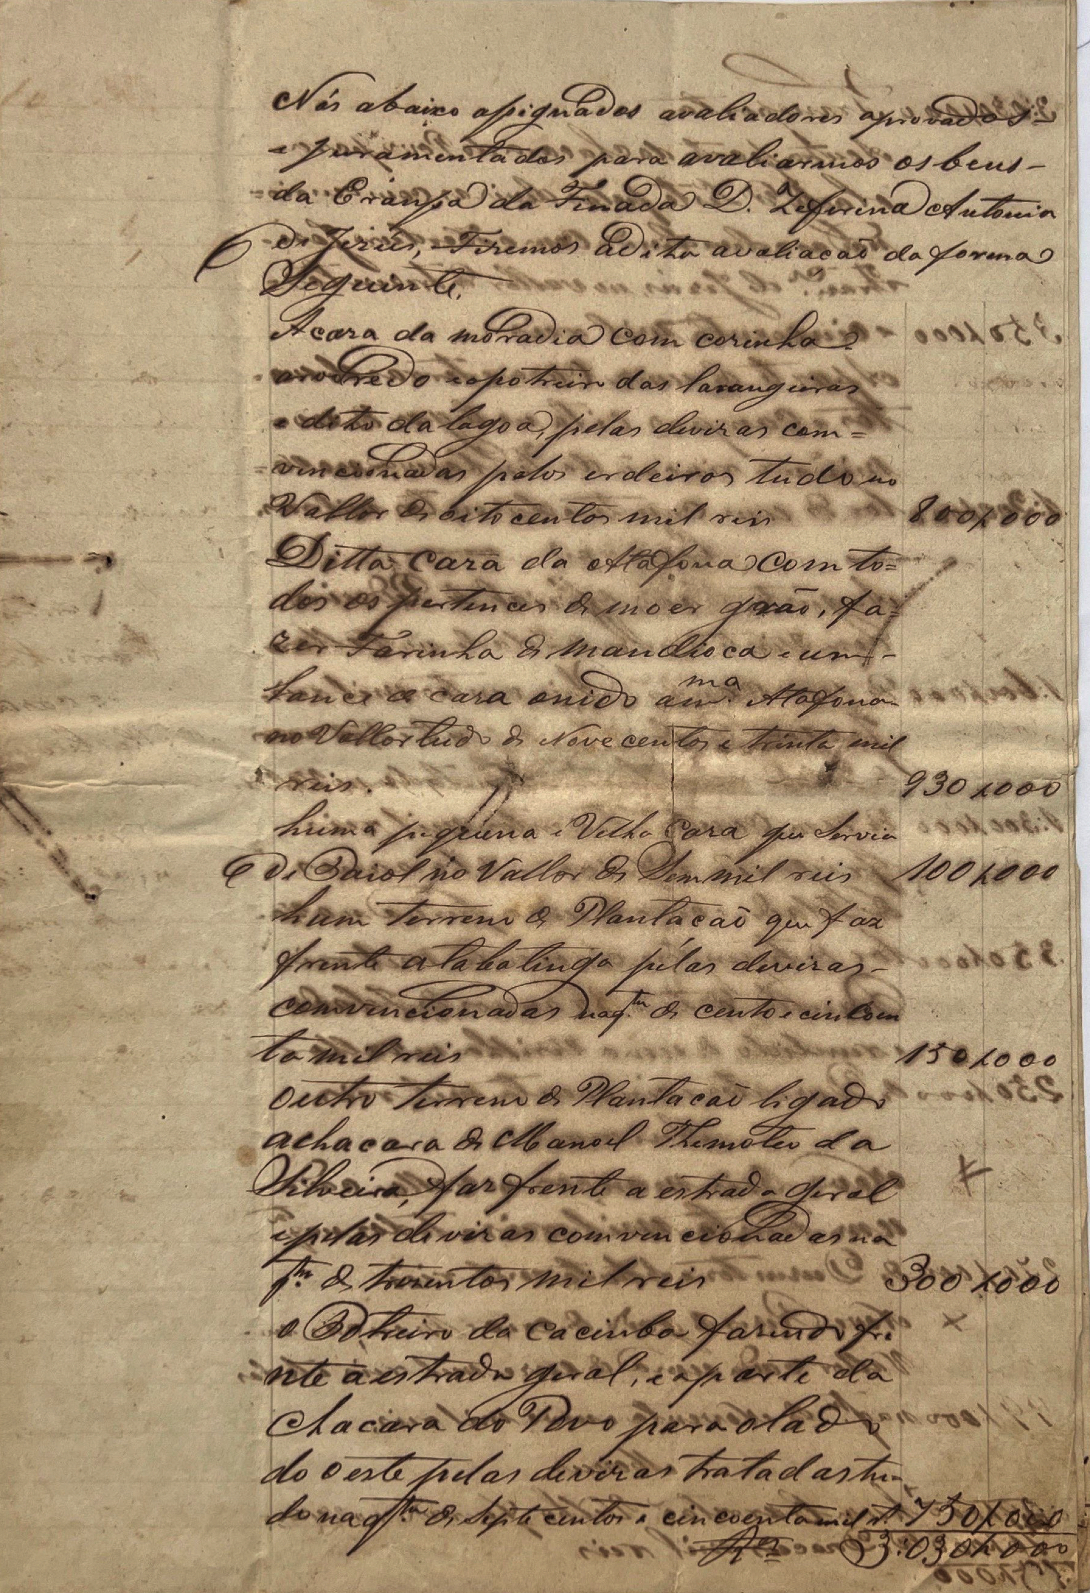 Nós abaixo asignados avaliadores aprovados
e juramentados para avaliarmos os bens
da Erança da Finada D. Zeferina Antonia
de Jezús, Fizemos a dita avaliacaõ da forma
Seguinte.
A caza da moradia com cozinha
arvoredo e o potreiro das larangeiras
e dito da lagoa, pelas devizas com=
vencionadas pelos erdeiros tudo no
Vallor de oito centos mil reis 800$000
Ditta caza da Atafona com to=
dos os pertences de moer grão, fa=
zer Farinha de mandioca e um
lance de caza onido a m.ma Atafona
no Vallor tudo de Nove centos e trinta mil
reis. 930$000
huma piquena e Velha Caza que Servia
de Paiol no Vallor de Sem mil reis 100$000
hum terreno de Plantacaõ que faz
frente a tabatinga pelas devizas
comvencionadas na q.tia de cento e cincoen
ta mil reis 150$000
Outro terreno de Plantacaõ ligado
a chacara de Manoel Themoteo da
Silveira, faz frente a estrada geral
e pelas devizas comvencionadas na
q.tia de trezentos mil reis 300$000
O Potreiro da cacimba fazendo fre
nte a estrada geral, e a parte da
Chacara do Povo para o lado
do oeste pelas devizas tratadas tu
do na q.tia de Septe centos e cincoenta mil r.s 750$000
R.s 3:030$000